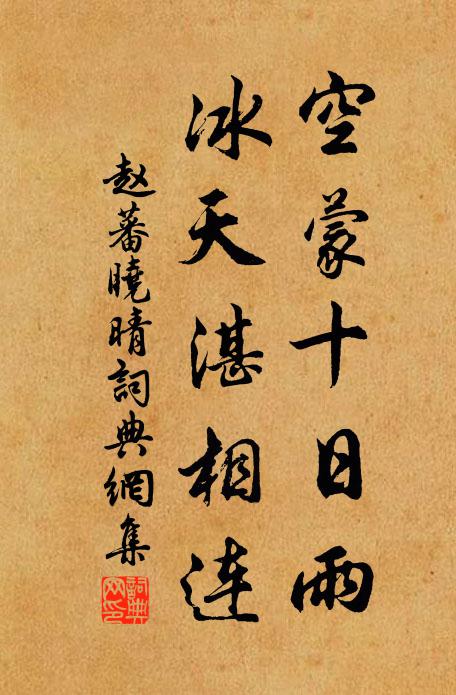 空蒙十日雨
冰天湛相連
赵蕃曉晴詞典網集
詞典网印